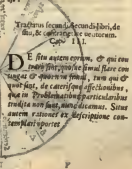 Tractatus secundi, Secundi libri, de
situ, & contrarietate ventorum.
Cap. III.
DE situ autem eorum, & qui con
trarij sint, quosue simul flare con
tingat & quos non simul, tum qui &
quot sint, de caeterisque affectionibus,
quae in Problematibus particularibus
tradita non sunt, nunc dicamus. Situs
autem rationes ex descriptione con-
templari oportet